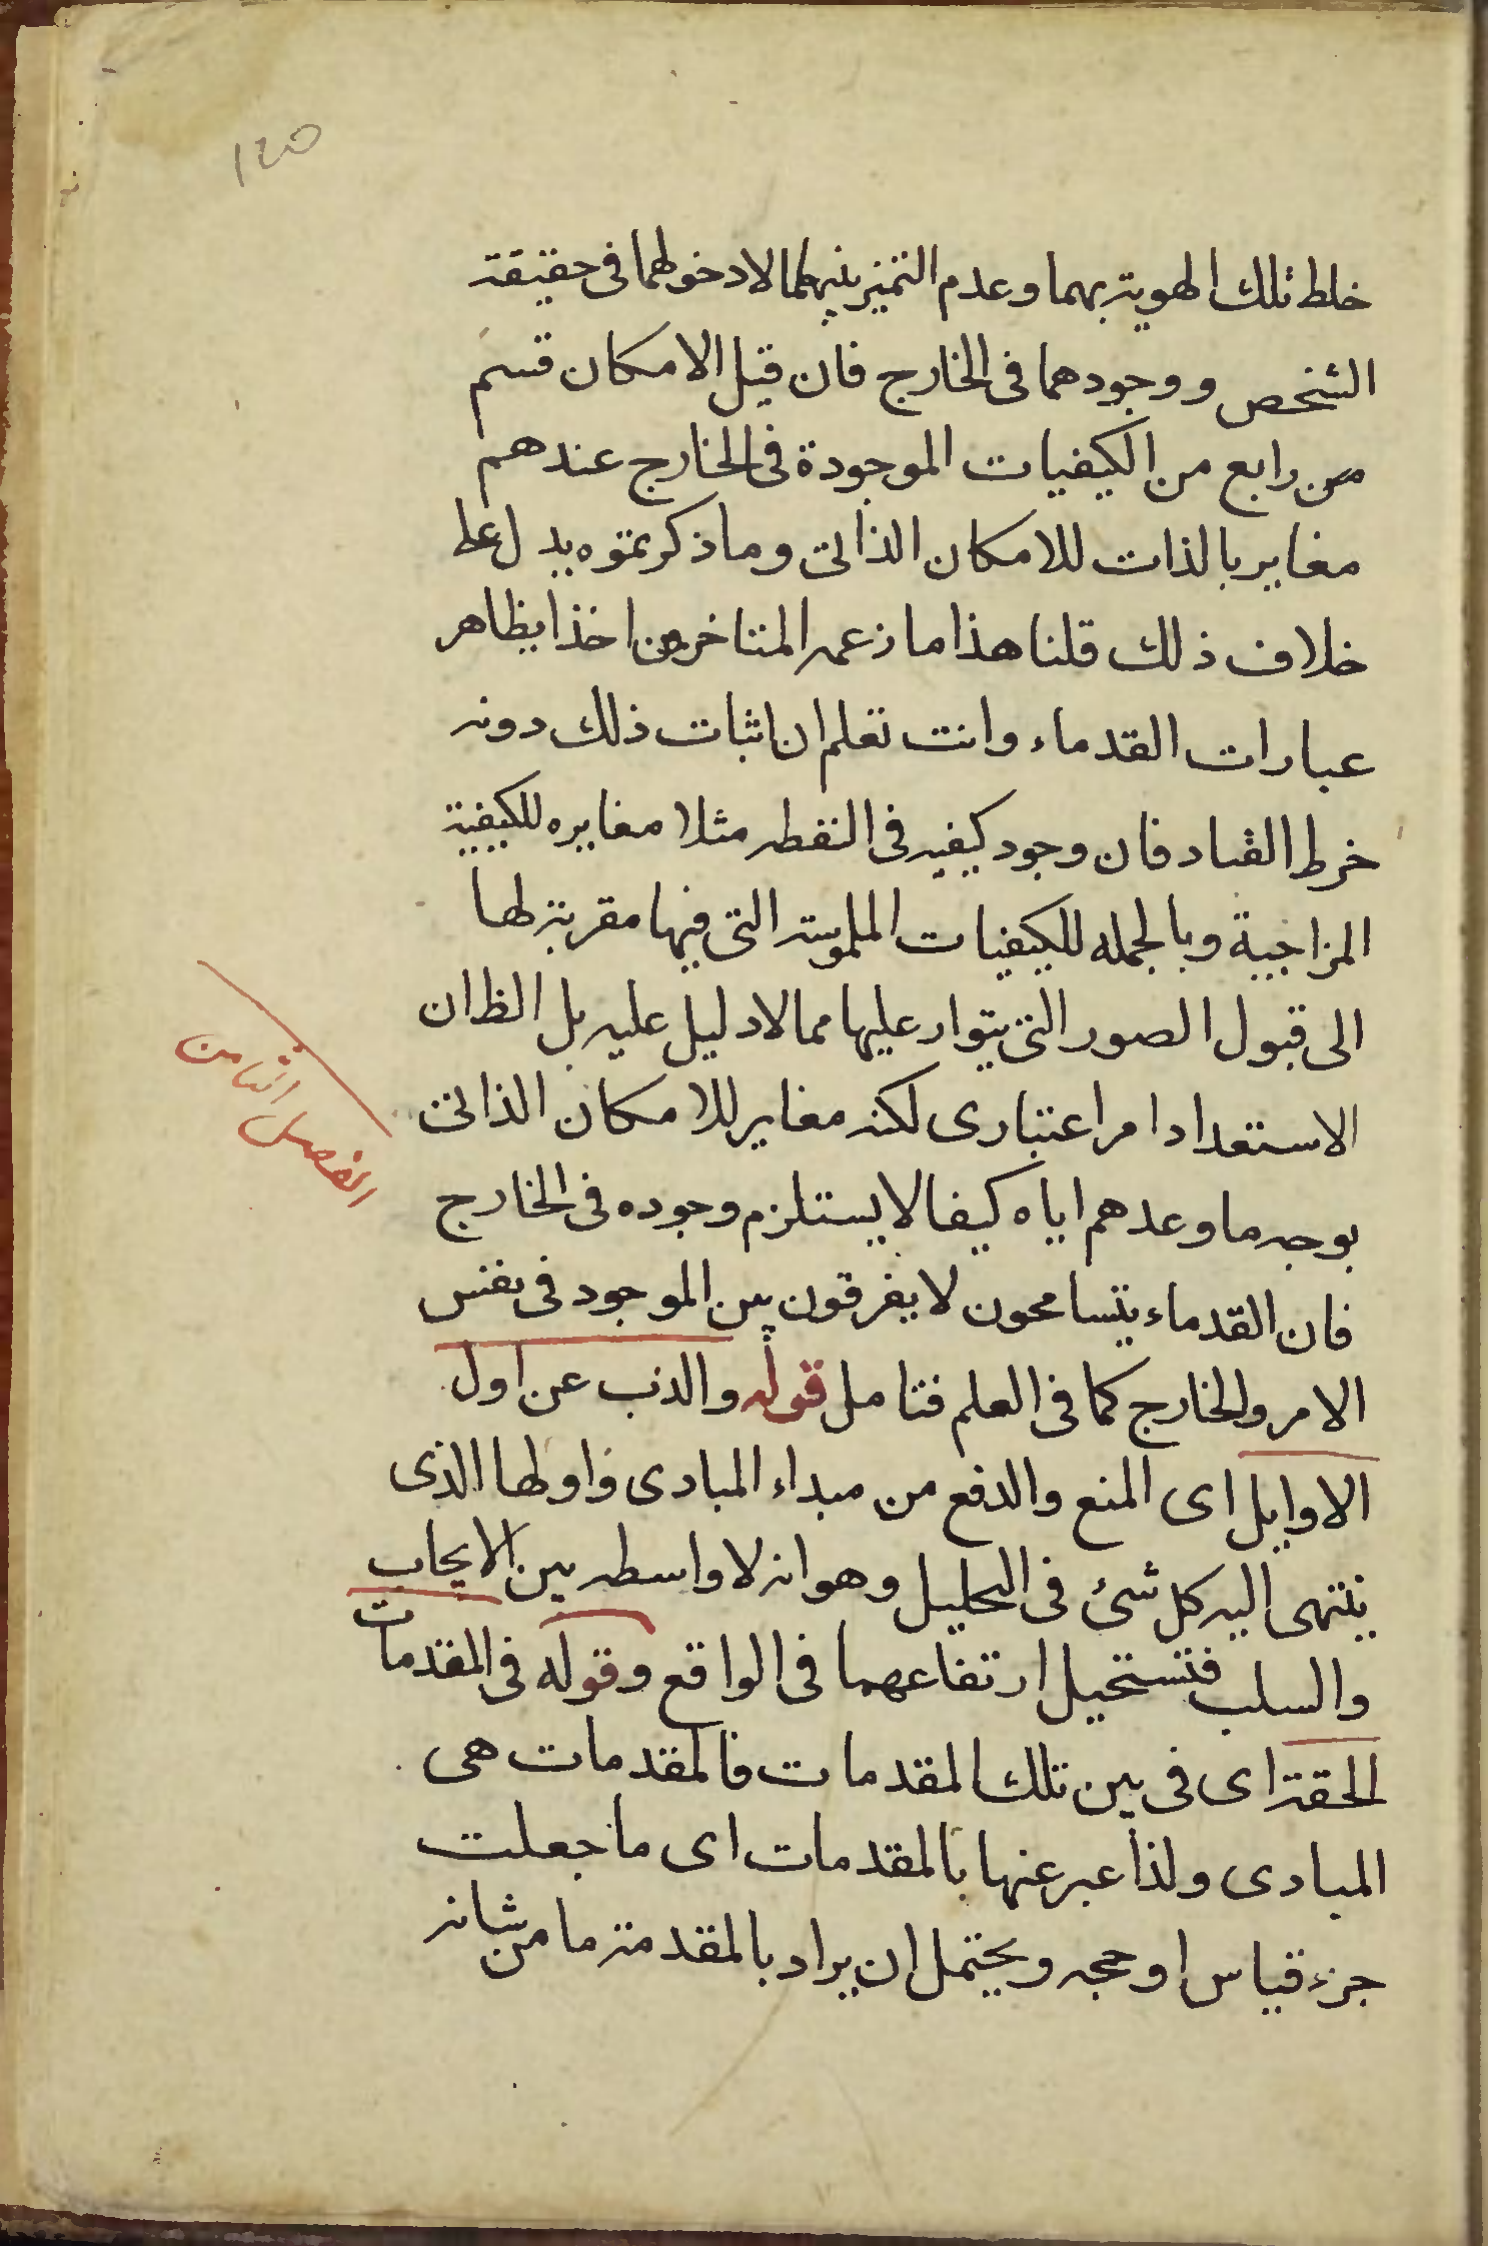 ١٤٥
خلط تلك الهوية بهما وعدم التميز بينهما لا دخولهما فى حقيقة
الشخص ووجودهما فى الخارج فان قيل الامكان قسم
من رابع من الكيفيات الموجودة فى الخارج عندهم
مغاير بالذات للامكان الذاتى وما ذكرتموه يدل على
خلاف ذلك قلنا هذا ما زعمه المتاخرون اخذا بظاهر
عبارات القدماء وانت تعلم ان اثبات ذلك دونه
خرط القتاد فان وجود كيفيه فى النقطه مثلا مغايره للكيفية
المزاجية وبالجمله للكيفيات الملموسة التى فيها مقربة لها
الى قبول الصور التى يتوارد عليها مما لا دليل عليه بل الظ ان
الاستعداد امر اعتبارى لكنه مغاير للامكان الذاتى
بوجه ما وعدهم اياه كيفا لا يستلزم وجوده فى الخارج
فان القدماء يتسامحون لا يفرقون بين الموجود فى نفس
الامر والخارج كما فى العلم فتامل قوله والذب عن اول
الاوايل اى المنع والدفع من مبداء المبادى واولها الذى
ينتهى اليه كل شئ فى التحليل وهو انه لا واسطه بين الايجاب
والسلب فتستحيل ارتفاعهما فى الواقع وقوله فى المقدمات
الحقة اى فى بين تلك المقدمات فالمقدمات هى
المبادى ولذا عبر عنها بالمقدمات اى ما جعلت
جزء قياس او حجه ويحتمل ان يراد بالمقدمة ما من شانه
الفصل الثامن